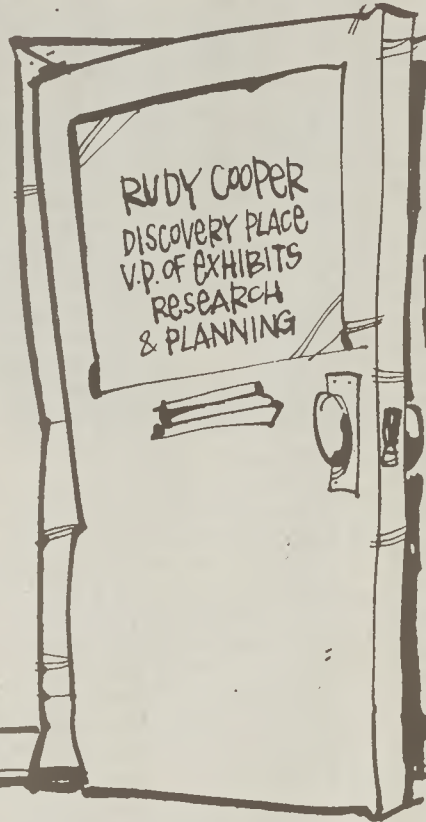 RUDY COOPER
DISCOVERY PLACE
V.P. OF EXHIBITS
RESEARCH
& PLANNING